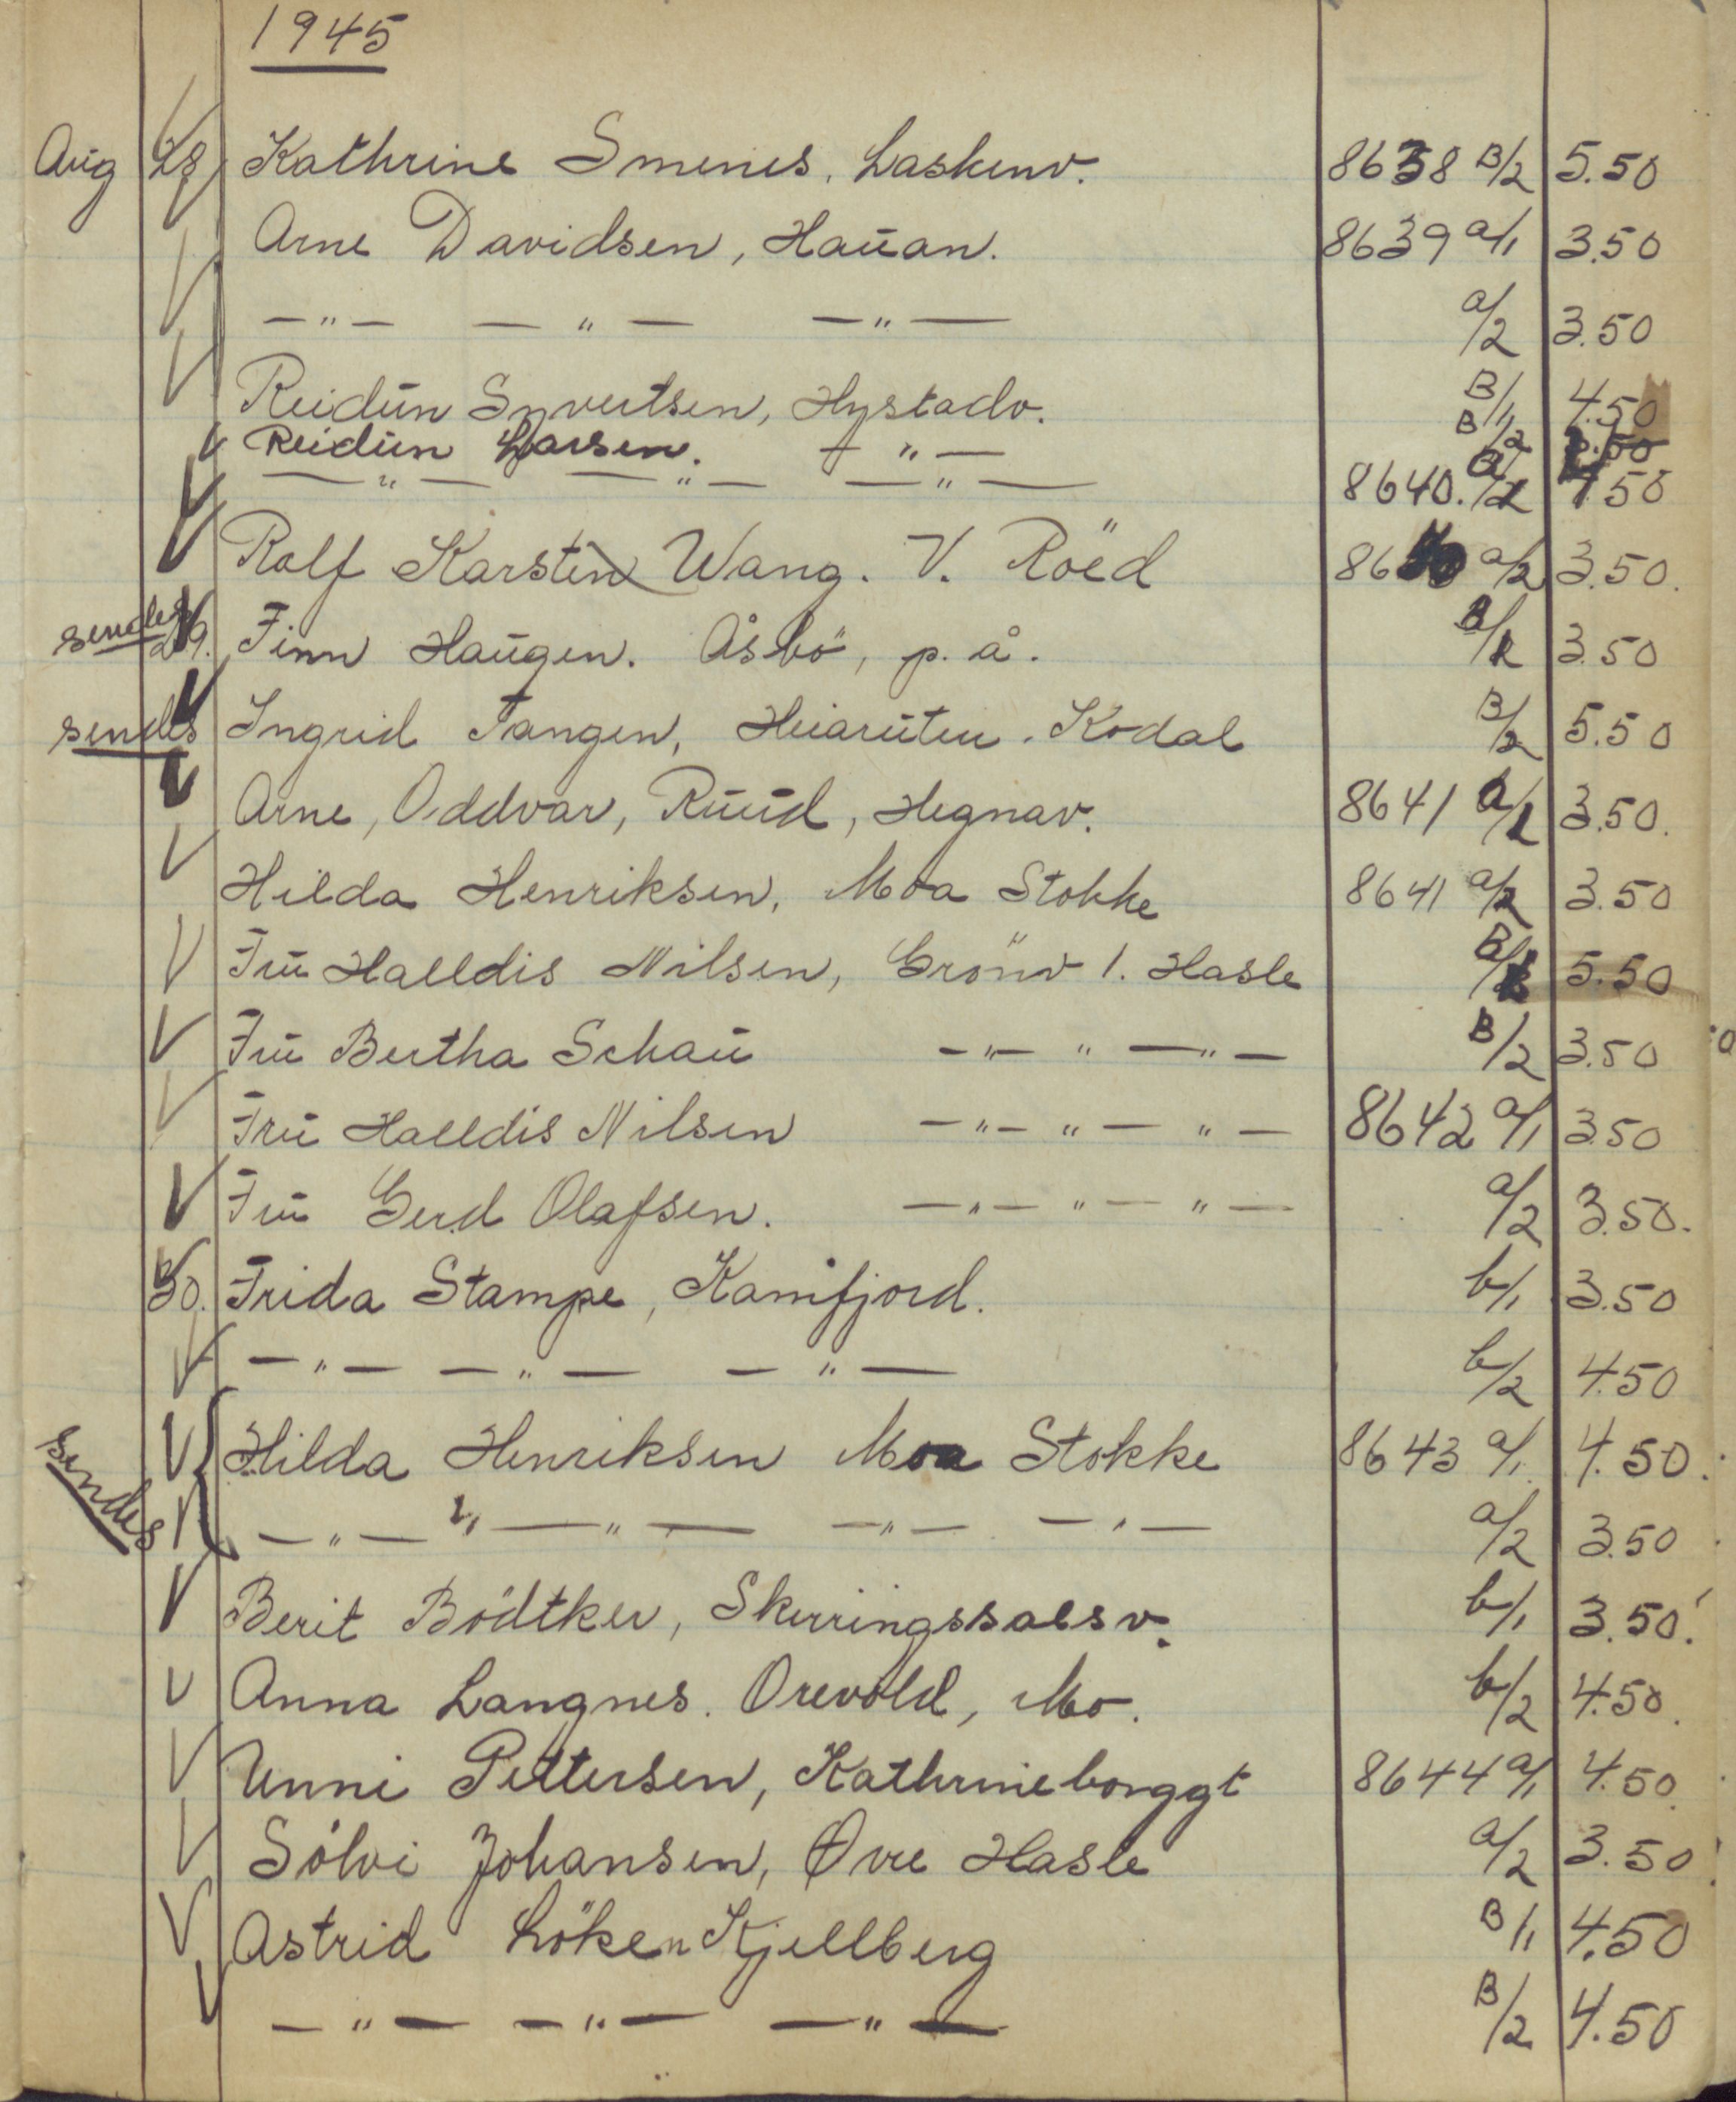 1945
Aug 28 Kathrine Smenes, Laskenv. 8638 B/2 5.50
Arne Davidsen, Hauan. 8639 a/1 3.50
— " — — " — — " — a/2 3.50
Reidun Syvertsen, Hystadv. B/1 4.50
Reidun Larsen. — " — B/2
— " — — " — — " — 8640. 4.50
Rolf Karsten Wang. V. Röed 86 a/2 3.50.
sendes 29. Finn Haugen. Åsbö, p. å. 3.50
sendes Ingrid Tangen, Heiaruten. Kodal B/2 5.50
Arne, Oddvar, Ruud, Hegnav. 8641 a/1 3.50.
Hilda Henriksen, Moa Stokke 8641 a/2 3.50
Fru Halldis Nilsen, Grönv 1. Hasle 5.50
Fru Bertha Schau — " — " — " — B/2 3.50
Fru Halldis Nilsen — " — " — " — 8642 a/1 3.50
Fru Gerd Olafsen. — " — " — " — a/2 3.50.
30. Frida Stampe, Kamfjord. b/1 3.50
— " — — " — — " — b/2 4.50
sendes Hilda Henriksen Moa Stokke 8643 a/1. 4.50.
— " — " — " — — " — — " — a/2 3.50
Berit Bödtker, Skirringssalsv. b/1 3.50.
Anna Langnes. Orevold, Mo. b/2 4.50.
Unni Pettersen, Kathrineborggt 8644 a/1 4.50.
Sölvi Johansen, Øvre Hasle a/2 3.50
Astrid Löken Kjellberg B/1 4.50
— " — — " — — " — B/2 4.50